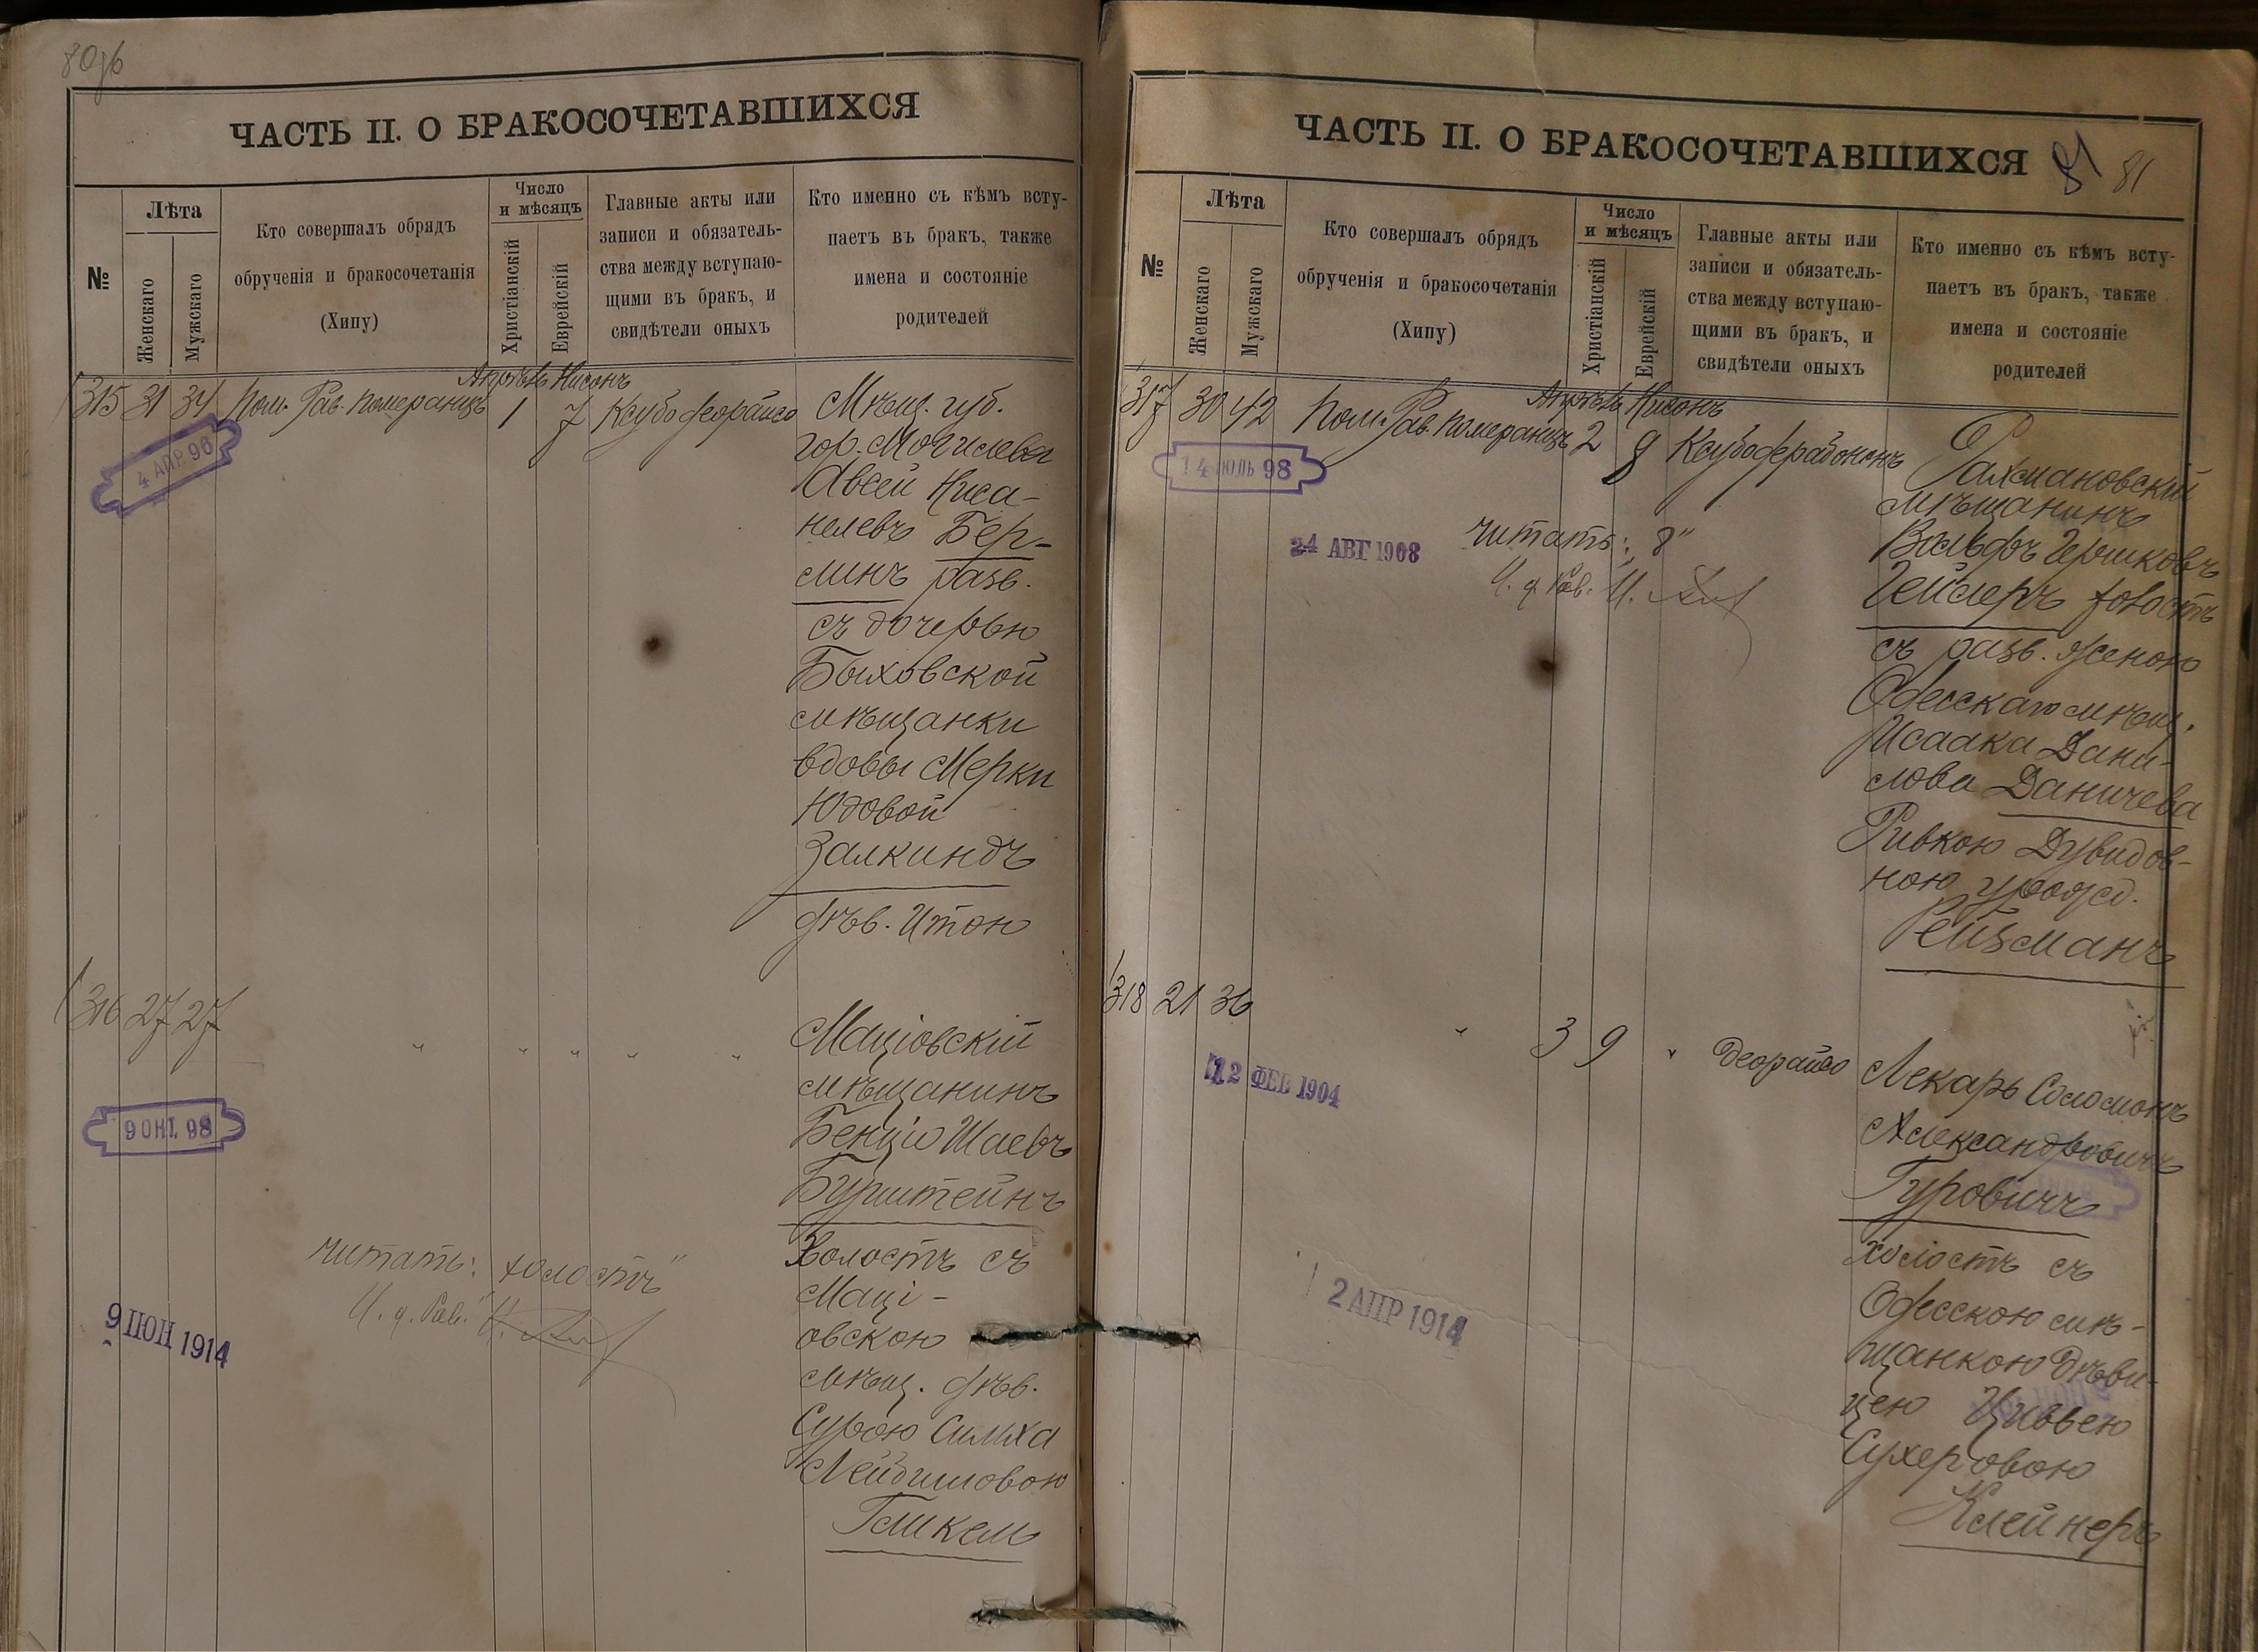 80об
ЧАСТЬ II. О БРАКОСОЧЕТАВШИХСЯ
№
Лѣта
Женскаго
Мужскаго
Кто совершалъ обрядъ
обрученія и бракосочетанія
(Хипу)
Число
и мѣсяцъ
Христіанскій
Еврейскій
Главные акты или
записи и обязатель-
ства между вступаю-
щими въ бракъ, и
свидѣтели оныхъ
Кто именно съ кѣмъ всту-
паетъ въ бракъ, также
имена и состояніе
родителей
Апрѣль Нисонъ
315 31 34 Пом. Рав. Померанцъ 1 7 Ксубо деорайсо
4 АПР. 98
Мѣщ. губ.
гор. Могилева
АвсейНиса-
нелевъ Бер-
линъ разв.
съ дочерью
Быховской
мѣщанки
вдовы Мерки
Юдовой
Залкиндъ
дѣв. Итою
316 27 27 " " " " "
9 ОКТ. 98
Маціовскій
мѣщанинъ
Бенціо Шаевъ
Бурштейнъ
Холостъ съ
Маці-
овскою
мѣщ. дѣв.
Сурою Симха
Лейбишовою
читать: „холостъ"
И. д. Рав.
9 ІЮН 1914
ЧАСТЬ II. О БРАКОСОЧЕТАВШИХСЯ
81 81
№
Лѣта
Женскаго
Мужскаго
Кто совершалъ обрядъ
обрученія и бракосочетанія
(Хипу)
Число
и мѣсяцъ
Христіанскій
Еврейскій
Главные акты или
записи и обязатель-
ства между вступаю-
щими въ бракъ, и
свидѣтели оныхъ
Кто именно съ кѣмъ всту-
паетъ въ бракъ, также
имена и состояніе
родителей
Апрѣль Нисонъ
317 30 42 Пом. Рав. Померанцъ 2 8 Ксубо дерабононъ
14 ІЮЛЬ 98
24 АВГ 1908
читать: „8"
И. д. Рав. И.
Рахмановскій
мѣщанинъ
Вольфъ Гершковъ
Гейлеръ холостъ
съ разв. женою
Одесскаго мѣщ.
Исаака Дани-
лова Даничева
Ривкою Дувидов-
ною урожд.
Рейзманъ
318 21 36 " 3 9 " деорайсо
12 ФЕВ 1904
2 АПР 1914
Лекарь Соломонъ
Александровичъ
Гуровичъ
холостъ съ
Одесскою мѣ-
щанкою дѣви-
цею Цивьею
Сухеровою
Клейнеръ